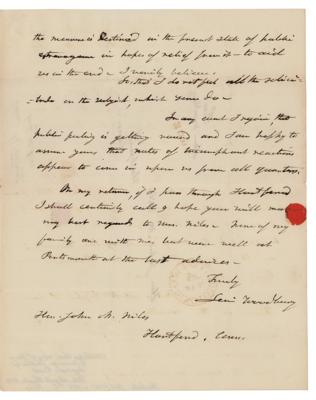 the measure is destined in the present state of public
extravagance in hopes of relief from it — to aid
us in the end — I verily believe.
So that I do not feel all the solici-
-tude on the subject which some do
In any event I rejoice that
public policy is getting sound and I am happy to
assure you that notes of triumphant reaction
appear to come in upon us from all quarters.
On my return, if I pass through Hartford
I shall certainly call & hope you will make
my best regards to Mrs. Niles — None of my
family are with me, but were well at
Portsmouth at the last advices —
Truly
Levi Woodbury
Hon. John M. Niles
Hartford, Conn.